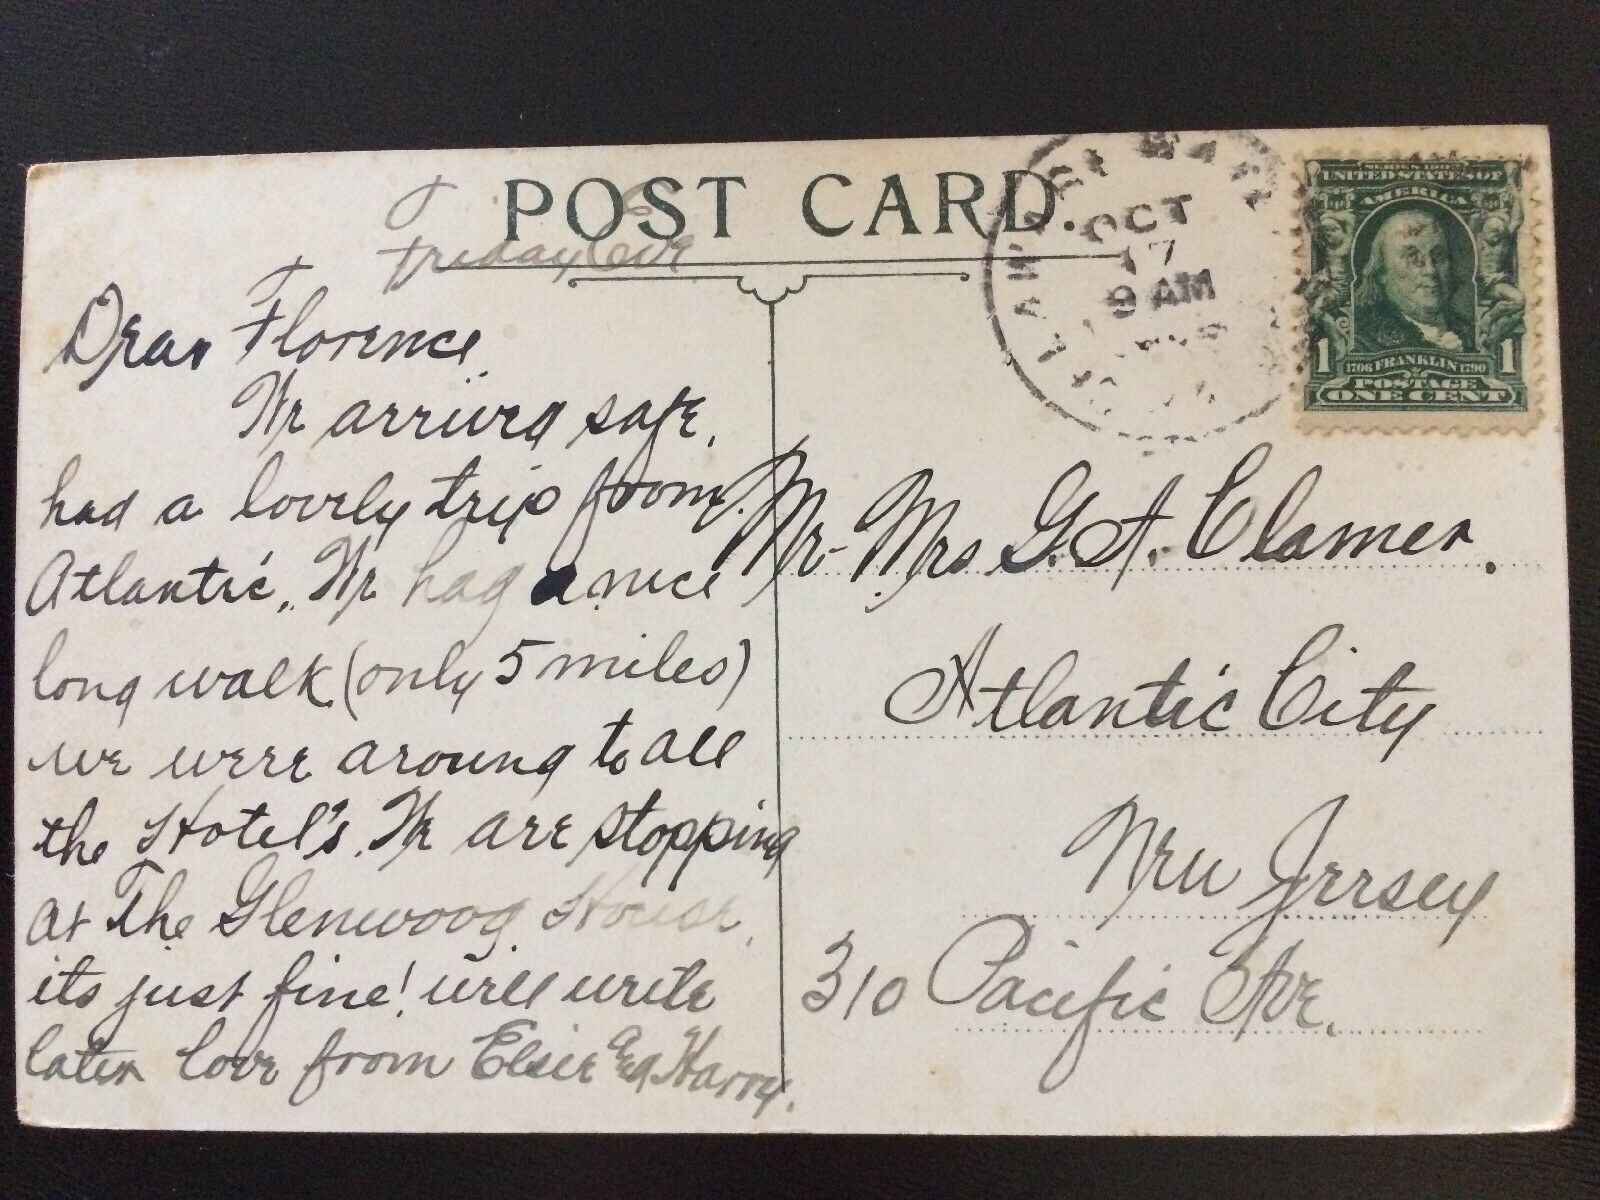 POST CARD.
Friday Eve
Dear Florence
We arrived safe,
had a lovely trip from
Atlantic, We had a nice
long walk (only 5 miles)
we were around to all
the Hotel's. We are stopping
at The Glenwood House,
its just fine! will write
later love from Elsie and Harry.
OCT
17
9 AM
SERIES 1902
UNITED STATES OF
AMERICA
1 1706 FRANKLIN 1790 1
POSTAGE
ONE CENT
Mr- Mrs G. A. Clamer.
Atlantic City
New Jersey
310 Pacific Ave.